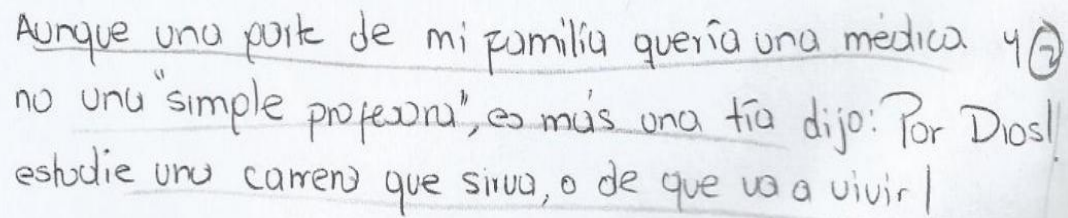 Aunque una parte de mi familia quería una médica y ②
no una "simple profesora", es más una tía dijo: Por Dios!
estudie una carrera que sirva, o de que va a vivir!